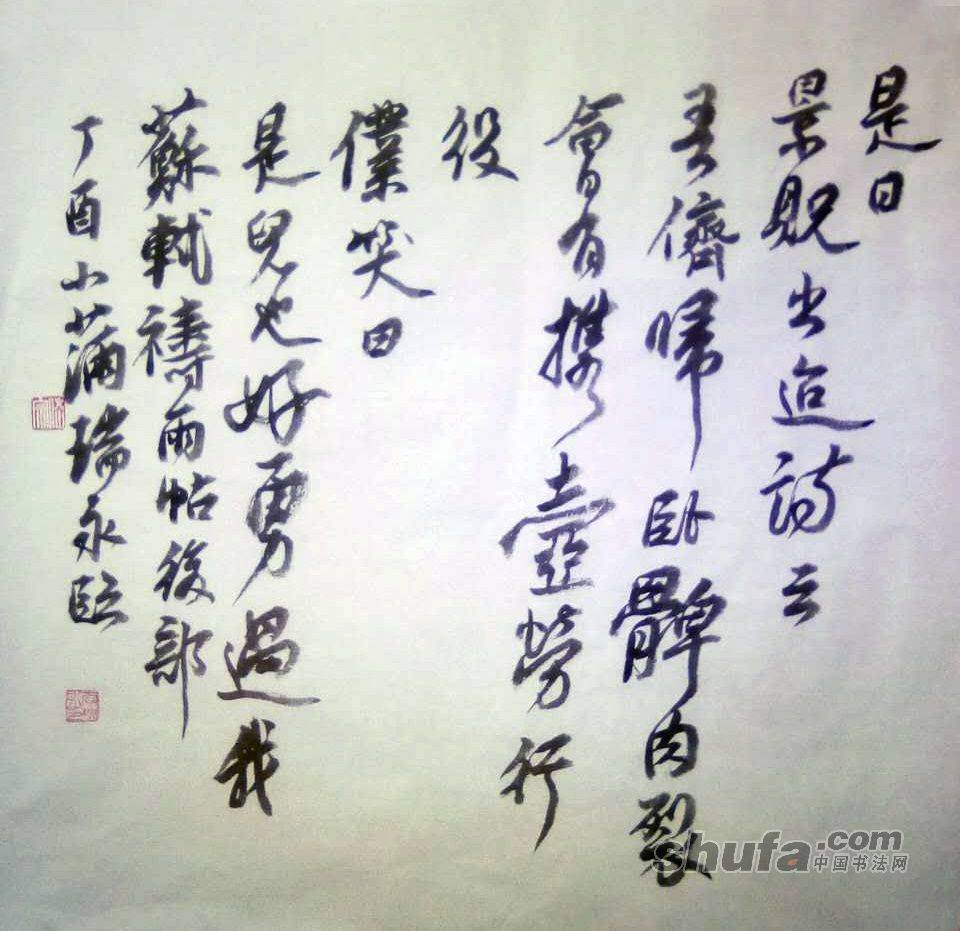 是日
景貺出迨詩云
吾儕歸卧髀肉裂
會有攜壺勞行
役
僕笑曰
是兒也好勇過我
蘇軾禱雨帖後部
丁酉小滿瑞永臨
shufa.com
中国书法网